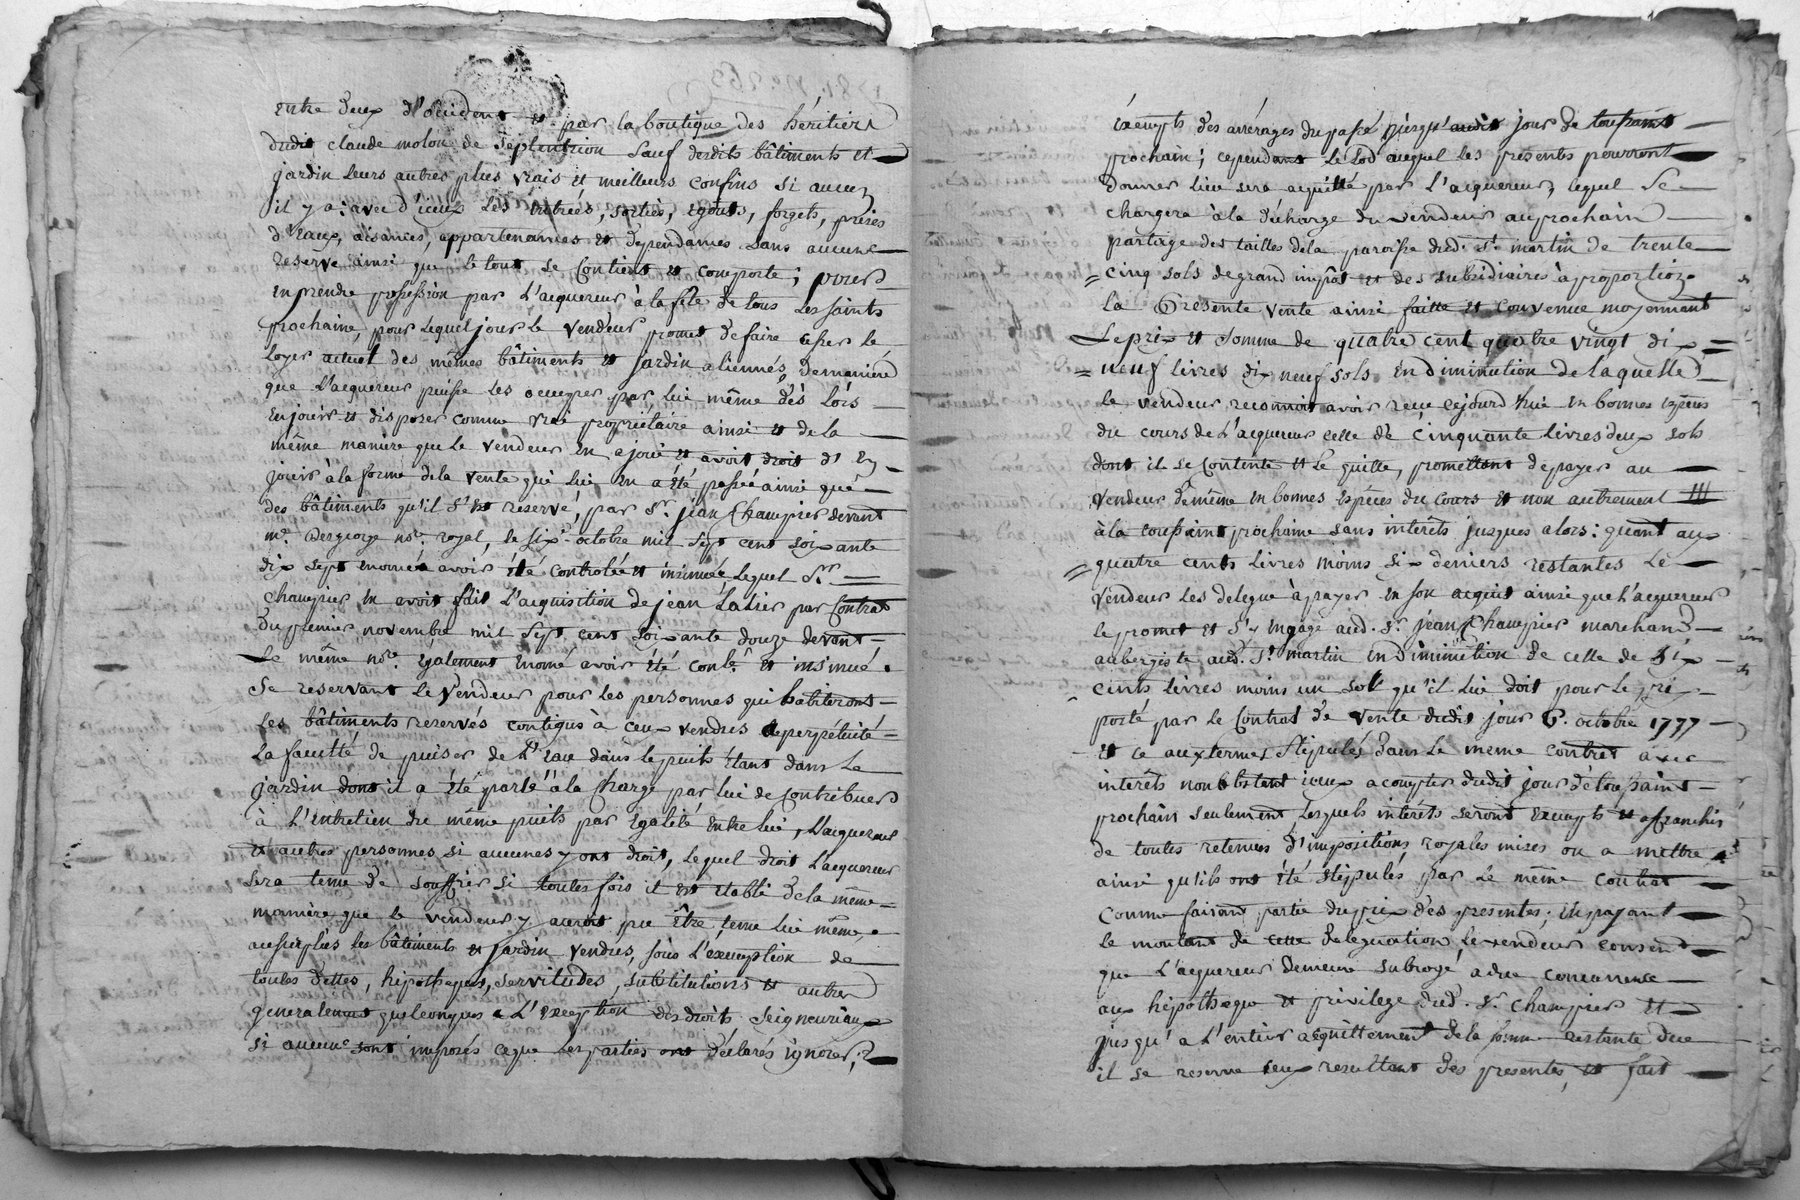 entre deux d'occident et par la boutique des héritiers
dudit claude molon de septentrion sauf desdits bâtiments et
jardin leurs autres plus vrais et meilleurs confins si aucun
il y a: avec d'iceux les entrées, sorties, égouts, forgets, prises
d'eaux, aisances, appartenances et dépendances sans aucune
reserve ainsi que le tout se contient et comporte; pour
en prendre possession par l'acquereur à la fête de tous les saints
prochaine, pour lequel jour le vendeur promet de faire cesser le
loyer actuel des mêmes bâtiments et jardin aliennés, demaniére
que l'acquereur puisse les occuper par lui même dès lors
en jouir et disposer comme vrai propriétaire ainsi et de la
même manière que le vendeur en a joui et avoit droit d'en
jouir à la forme de la vente qui lui en a été passée ainsi que
des bâtiments qu'il s'est reservé, par sr. jean Champier devant
me. Desgeorge nore. royal, le six octobre mil sept cent soixante
dix sept enoncé avoir été controlée et insinuée, lequel Sr.
Champier en avoit fait l'acquisition de jean Lalier par contrat
du premier novembre mil sept cent soixante douze devant
Le même nore. également enoncé avoir été contlé. et insinué.
Se reservant le vendeur pour les personnes qui habiteront
les bâtiments reservés contigus à ceux vendus à perpétuité
la faculté de puiser de l'eau dans le puits étant dans le
jardin dont il a été parlé à la charge par lui de contribuer
à l'entretien du même puits par égalité entre lui, l'acquereur
et autres personnes si aucunes y ont droit, lequel droit l'acquereur
sera tenu de souffrir si toutes fois il est établi de la même
manière que le vendeur y auroit pu être tenu lui même,
au surplus les bâtiments et jardin vendus, sous l'exemption de
toutes dettes, hipothèques, servitudes, substitutions et autres
generalement quelconques à l'exception des droits seigneuriaux
si aucuns sont imposés ce que les parties ont déclarés ignorer,
éxempts des arrérages du passé jusqu'audit jour de toussaint
prochain; cependant le Lod auquel les presentes pourront
donner lieu sera acquitté par l'acquereur, lequel se
chargera à la décharge du vendeur au prochain
partage des tailles de la paroisse dud. St. martin de trente
cinq sols de grand impôt et des subsidiaires à proportion
la Presente vente ainsi faitte et convenue moyennant
Le prix et somme de quatre cent quatre vingt dix
neuf livres dix neuf sols en diminution de laquelle
le vendeur reconnoit avoir reçu cejourd'hui en bonnes espèces
du cours de l'acquereur celle de cinquante livres deux sols
dont il se contente et le quitte, promettant de payer au
vendeur de même en bonnes espèces du cours et non autrement
à la toussaint prochaine sans interêts jusques alors: quant aux
quatre cents livres moins six deniers restantes le
vendeur les delegue à payer en son acquit ainsi que l'acquereur
le promet et s'y engage aud. sr. jean Champier marchand
aubergiste aud. St martin en diminution de celle de six
cents livres moins un sol qu'il lui doit pour le prix
porté par le contrat de vente dudit jour 6. octobre 1777
et ce aux termes stipulés dans le meme contrat avec
interêts nonobstant iceux a compter dudit jour de toussaint
prochain seulement, lesquels intérêts seront exempts et affranchis
de toutes retenues d'impositions royales mises ou a mettre
ainsi qu'ils ont été stipulés par le même contrat
comme faisant partie du prix des presentes; en payant
le montant de cette delegation, le vendeur consent
que l'acquereur demeure subrogé a due concurrence
aux hipothèque et privilege dud. sr. Champier et
jusqu'à l'entier acquittement de la somme restante due
il se reserve ceux resultant des presentes, et fait